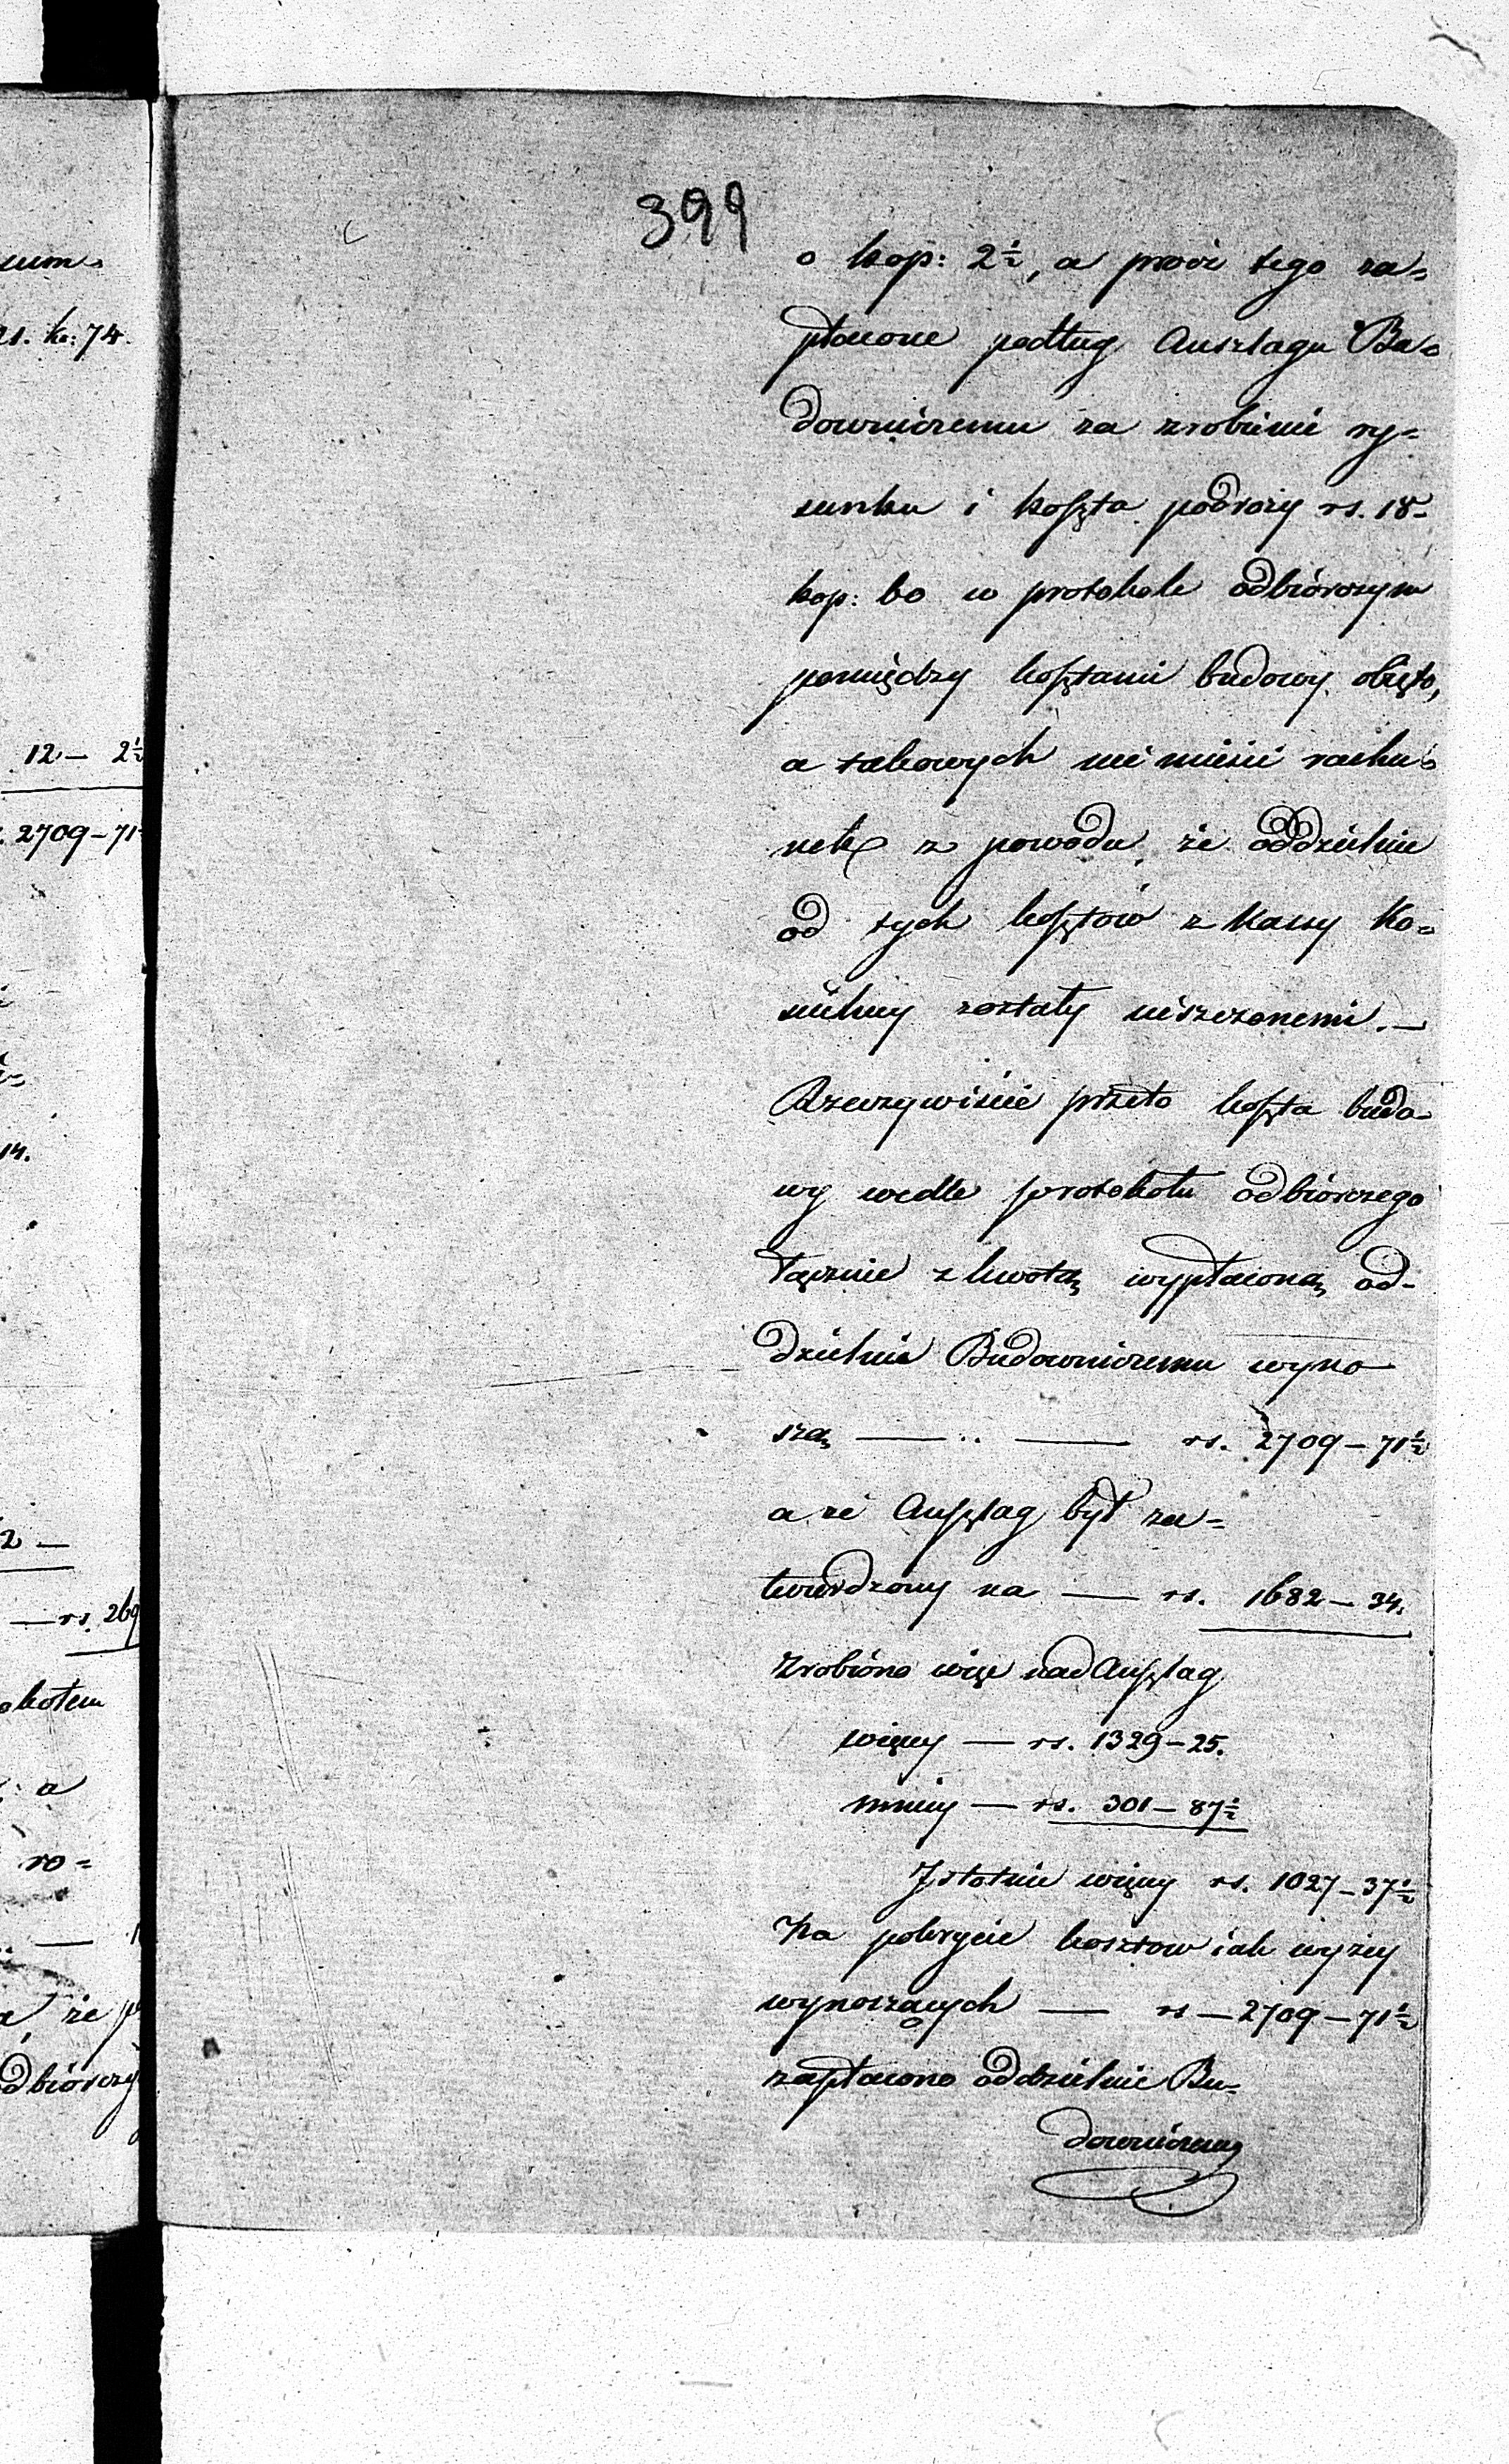 399
o kop: 2½, a prócz tego za=
płacone podług Anszlagu Bu=
downiczemu za zrobienie ry=
sunku i koszta podroży rs. 18-
kop: 60 w protokole odbiórczym
pomiędzy kosztami budowy objęto,
a takowych nie mieści rachu=
nek z powodu, że oddzielnie
od tych kosztów z kassy Ko=
ścielney zostały uiszczonemi. —
Rzeczywiście przeto koszta budo-
wy wedle protokołu odbiórczego
łącznie z kwotą wypłaconą od-
dzielnie Budowniczemu wyno
szą — .. — rs. 2709 – 71½
a że Anszlag był za=
twierdzony na — rs. 1682 – 34.
Zrobiono więc nad Anszlag
więcey — rs. 1329 – 25.
mniey — rs. 301 – 87½
Istotnie więcey rs. 1027 – 37½
Na pokrycie kosztow iak wyżey
wynoszących — rs – 2709 – 71½
zapłacono oddzielnie Bu-
downiczemu
sum=
ks. ko: 74.
12 — 2½
2709 – 71½
14.
2 —
— rs. 269
okołem
a
ro=
że p
dbiórczy